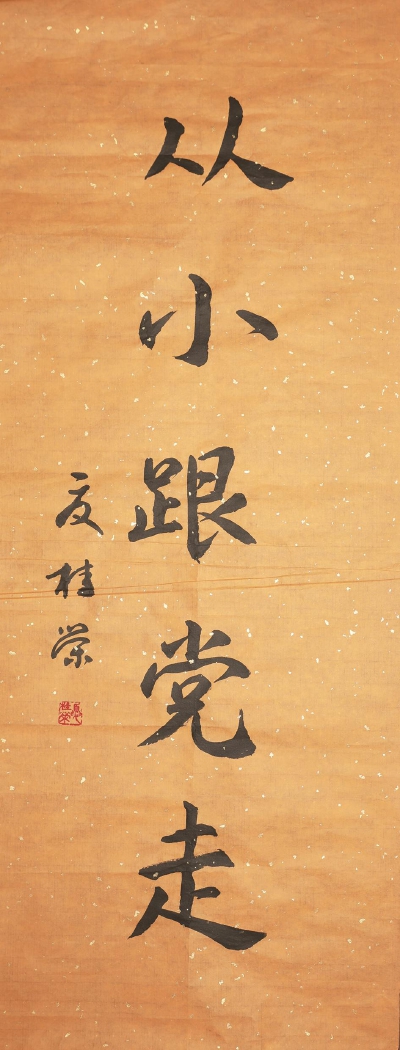 从小跟党走
夏桂荣